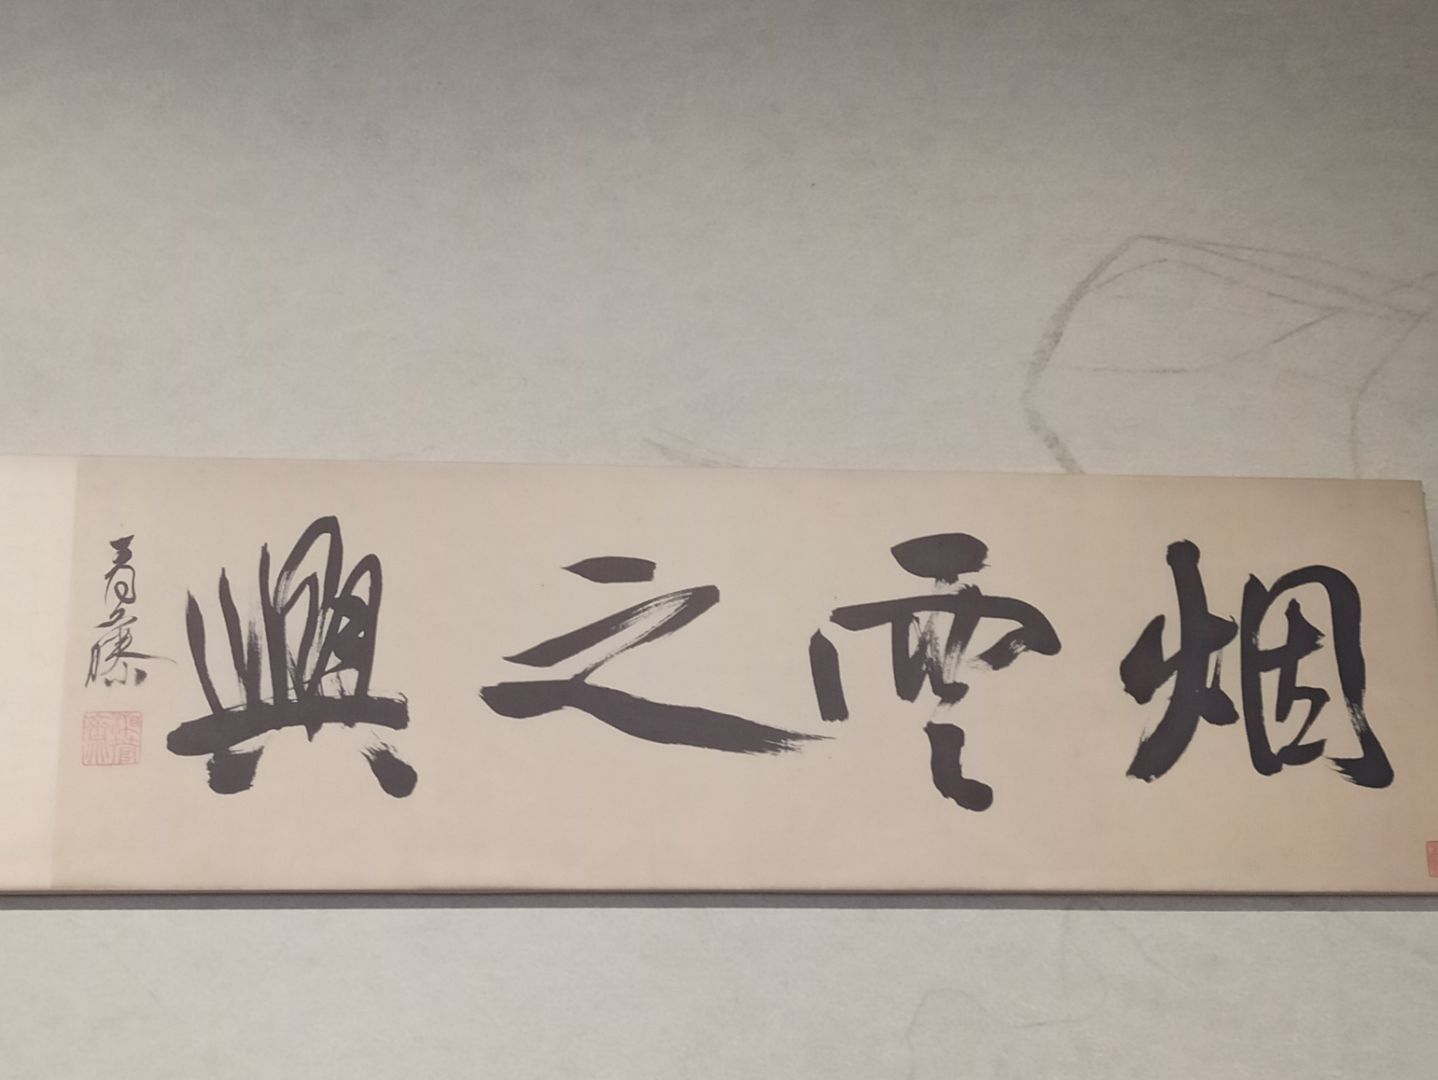 烟雲之興
青藤